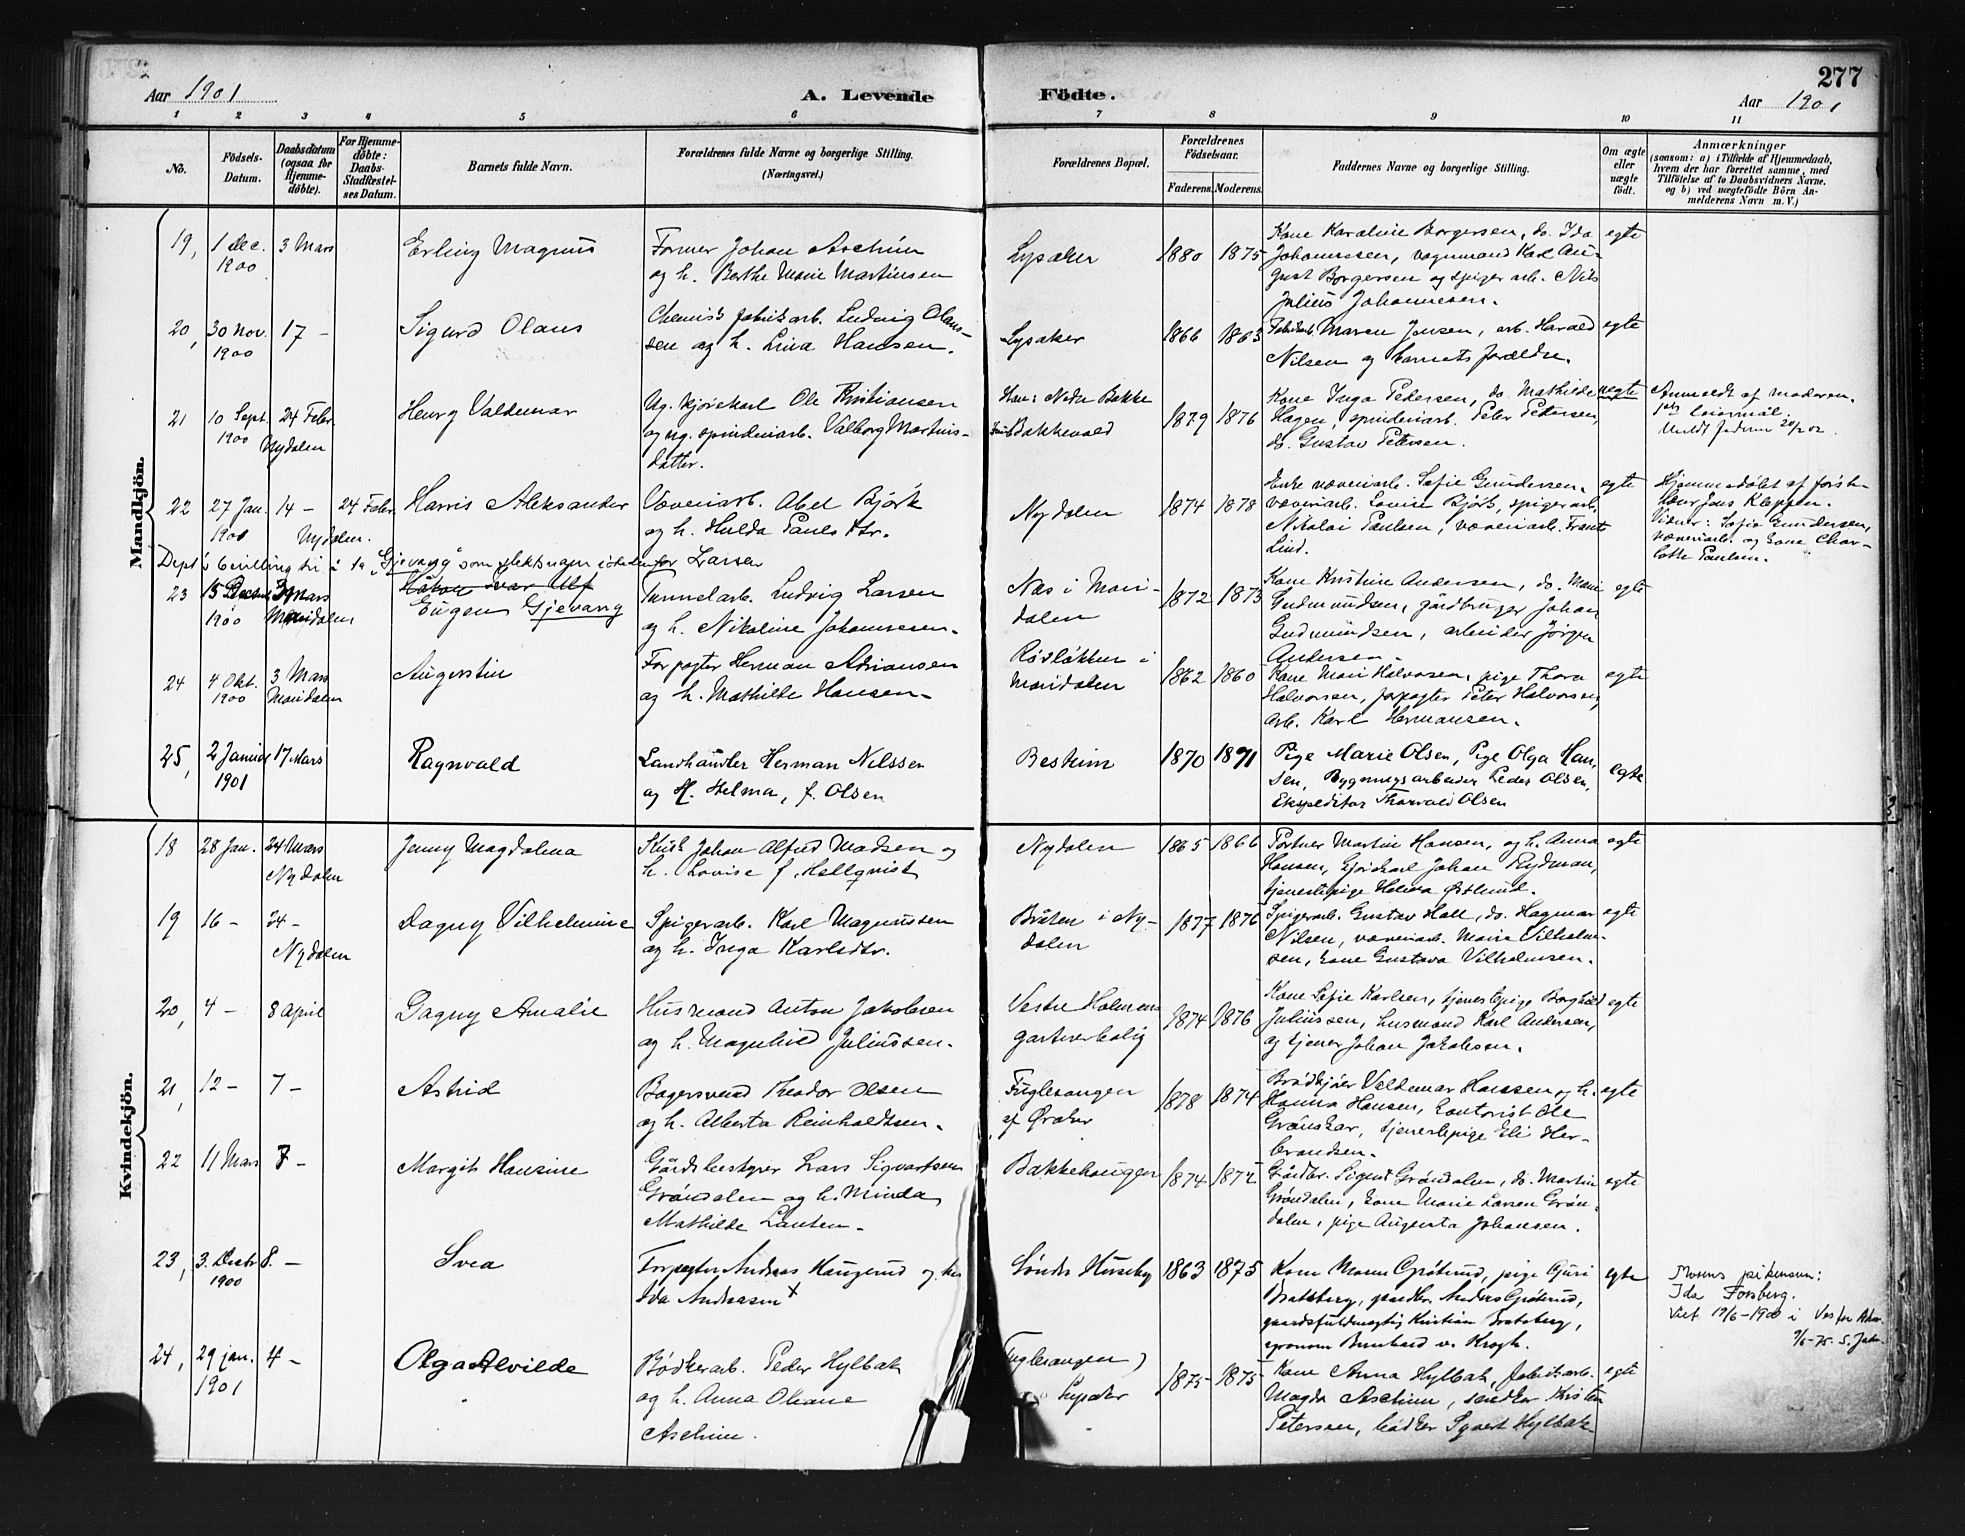 277
Aar 1901
A. Levende Födte.
Aar 1901
1 2 3 4 5 6 7 8 9 10 11
No.
Födsels-Datum.
Daabsdatum (ogsaa för Hjemme-döbte).
For Hjemme-döbte: Daabs-Stadfæstel-ses Datum.
Barnets fulde Navn.
Forældrenes fulde Navne og borgerlige Stilling. (Næringsvei.)
Forældrenes Bopæl.
Forældrenes Födselsaar.
Faderens. Moderens.
Faddernes Navne og borgerlige Stilling.
Om ægte eller uægte födt.
Anmærkninger
(saasom: a) i Tilfælde af Hjemmedaab,
hvem der har forrettet samme, med
Tilföielse af to Daabsvidners Navne,
og b) ved uægtefödte Börn An-
melderens Navn m. V.)
Mandkjön.
19, 1 Dec. 1900 3 Mars Erling Magnus
Former Johan Aschim
og h. Berthe Marie Martinsen
Lysaker 1880 1875
Kone Karoline Borgersen, do. Ida
Johannesen, vognmand Karl Au-
gust Borgersen og spigerarb. Nils
Julius Johannesen.
egte
20, 30 Nov. 1900 17 - Sigurd Olaus
Chemisk fabrikarb. Ludvig Olaus-
sen og h. Lina Hansen.
Lysaker 1866 1863
Fabrikarb. Maren Jensen, arb. Harald
Nilsen og barnets forældre.
egte
21 10 Sept. 1900 24 Febr. Nydalen Henry Valdemar
Ug. kjørekarl Ole Kristiansen
og ug. spinderiarb. Valborg Martins-
datter.
Han: Nedre Bakke
Bakkevold
1879 1876
Kone Inga Pedersen, do. Mathilde
Hagen, spinderiarb. Peter Petersen,
do. Gustav Petersen.
uegte
Anmeldt af moderen.
leiermål.
20/2 02.
22 27 Jan. 1901 14 - Nydalen. 24 Febr. Harris Aleksander
Væveriarb. Abel Bjørk
og h. Hulda Paulsdtr.
Nydalen 1874 1878
Enke væveriarb. Sofie Gundersen,
væveriarb. Lovise Bjørk, spigerarb.
Nikolai Paulsen, væveriarb. Frants
Lind.
egte
Hjemmedøbt af
Jens Kleppen.
Vidner: Sofie Gundersen,
væveriarb. og kone Char-
lotte Paulsen.
Dept's bevilling til å ta „Gjevang" som slektsnavn istedenfor Larsen
23 15 1900 3 Mars Maridalen Håkon Ivar Ulf
Eugen Gjevang
Tunnelarb. Ludvig Larsen
og h. Nikoline Johannesen.
Næs i Mari-
dalen
1872 1873
Kone Kristine Andersen, do. Marie
Gudmundsen, gårdbruger Johan
Gudmundsen, arbeider Jørgen
Andersen.
egte
24 4 Okt. 1900 3 Mars Maridalen Augustin
Forpagter Herman Adriansen
og h. Mathilde Hansen.
Rødløkken i
Maridalen
1862 1860
Kone Mari Halvorsen, pige Thora
Halvorsen, forpagter Peter Halvorsen,
arb. Karl Hermansen.
egte
25, 2 Januar 1901 17 Mars Ragnvald
Landhandler Herman Nilssen
og H. Helma, f. Olsen
Bestum 1870 1871
Pige Marie Olsen, Pige Olga Han-
sen, Bygningsarbeider Peder Olsen,
Ekspeditør Thorvald Olsen
egte
Kvindekjön.
18 28 Jan. 24 Mars Nydalen Jenny Magdalena
Kusk Johan Alfred Madsen og
h. Lovise f. Hellqvist
Nydalen 1865 1866
Portner Martin Hansen, og h. Anna
Hansen, kjørekarl Johan Rydman,
tjenestepige Helena Østlund.
egte
19 16 - 24 - Nydalen Dagny Vilhelmine
Spigerarb. Karl Magnussen
og h. Inga Karlsdtr.
Bråten i Ny-
dalen
1877 1876
Spigerarb. Gustav Hall, do. Hagmar
Nilsen, væveriarb. Marie Vilhelm-
sen, kone Gustava Vilhelmsen.
egte
20, 4 - 8 April Dagny Amalie
Husmand Anton Jakobsen
og h. Magnhild Juliussen.
Vestre Holmens
gartnerbolig
1874 1876
Kone Sofie Karlsen, tjenestepige Borghild
Juliussen, husmand Karl Andersen,
og tjener Johan Jakobsen.
egte
21, 12 - 7 - Astrid
Bagersvend Theodor Olsen
og h. Alberta Reinholdtsen.
Fuglesangen
af Øraker
1878 1874
Brødkjører Valdemar Hanssen og h.
Hanna Hansen, kontorist Ole
Grønskar, tjenestepige Eli Her-
brandsen.
egte
22 11 Mars 7 - Margit Hansine
Gårdsbestyrer Lars Sigvartsen
Grøndalen og h. Minda
Mathilde Lauten.
Bakkehaugen 1874 1872
Gårdbr. Sigurd Grøndalen, do. Martin
Grøndalen, kone Marie Larsen Grøn-
dalen, pige Augusta Johansen.
egte
23, 3. Decbr 1900 8. - Svea
Forpagter Andreas Haugerud og hu
Ida Andreasen x
Søndre Huseby 1863 1875
Kone Maren Grøterud, pige Guri
Bratsberg, gaardbr. Anders Grøterud,
gaardsfuldmægtig Kristian Bratsberg,
agronom Bernhard v. Krogh.
egte
Morens pikenavn:
Ida Forsberg.
Viet 19/6-1900 i Vestre Aker
9/6-75. S. Jahr.
24, 29 jan. 1901 4 - Olga Alvilde
Bødkerarb. Peder Hylbak
og h. Anna Oliane
Aschim.
Fuglesangen,
Lysaker
1875 1875
Kone Anna Hylbak, fabrikarb.
Magda Aschim, snedker Kristen
Petersen, bødker Syvert Hylbak.
egte